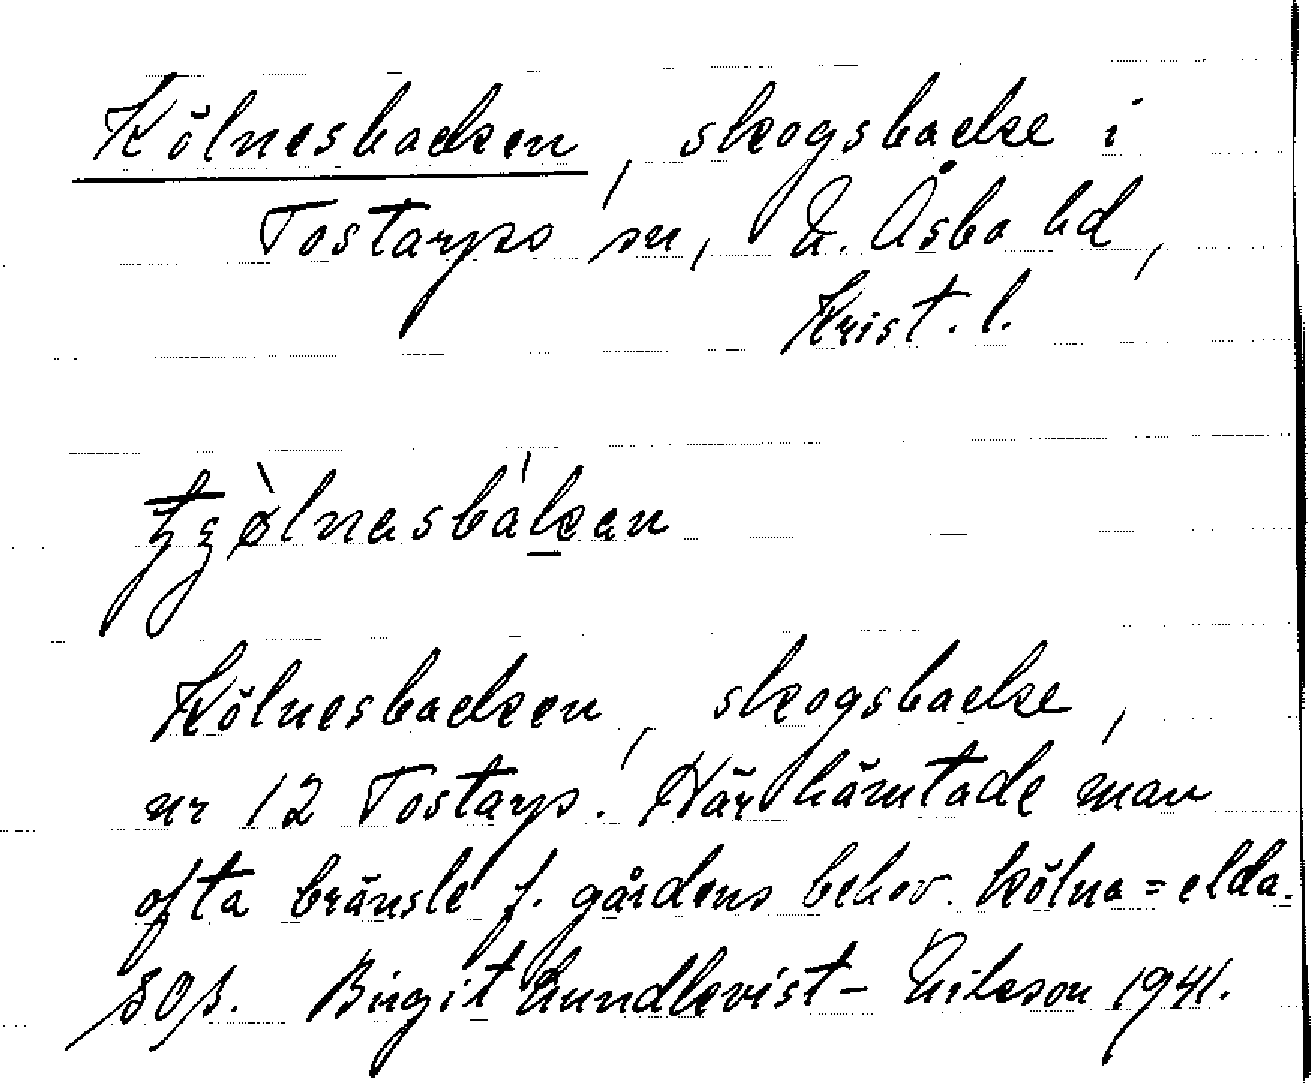 Kölnesbacken, skogsbacke i
Tostarps sn, N. Åsbo hd,
Krist. l.
Kölnesbacken, skogsbacke,
nr 12 Tostarp. Här hämtade man
ofta bränsle f. gårdens behov. kölna = elda.
SOp. Birgit Lundkvist-Nilsson 1941.